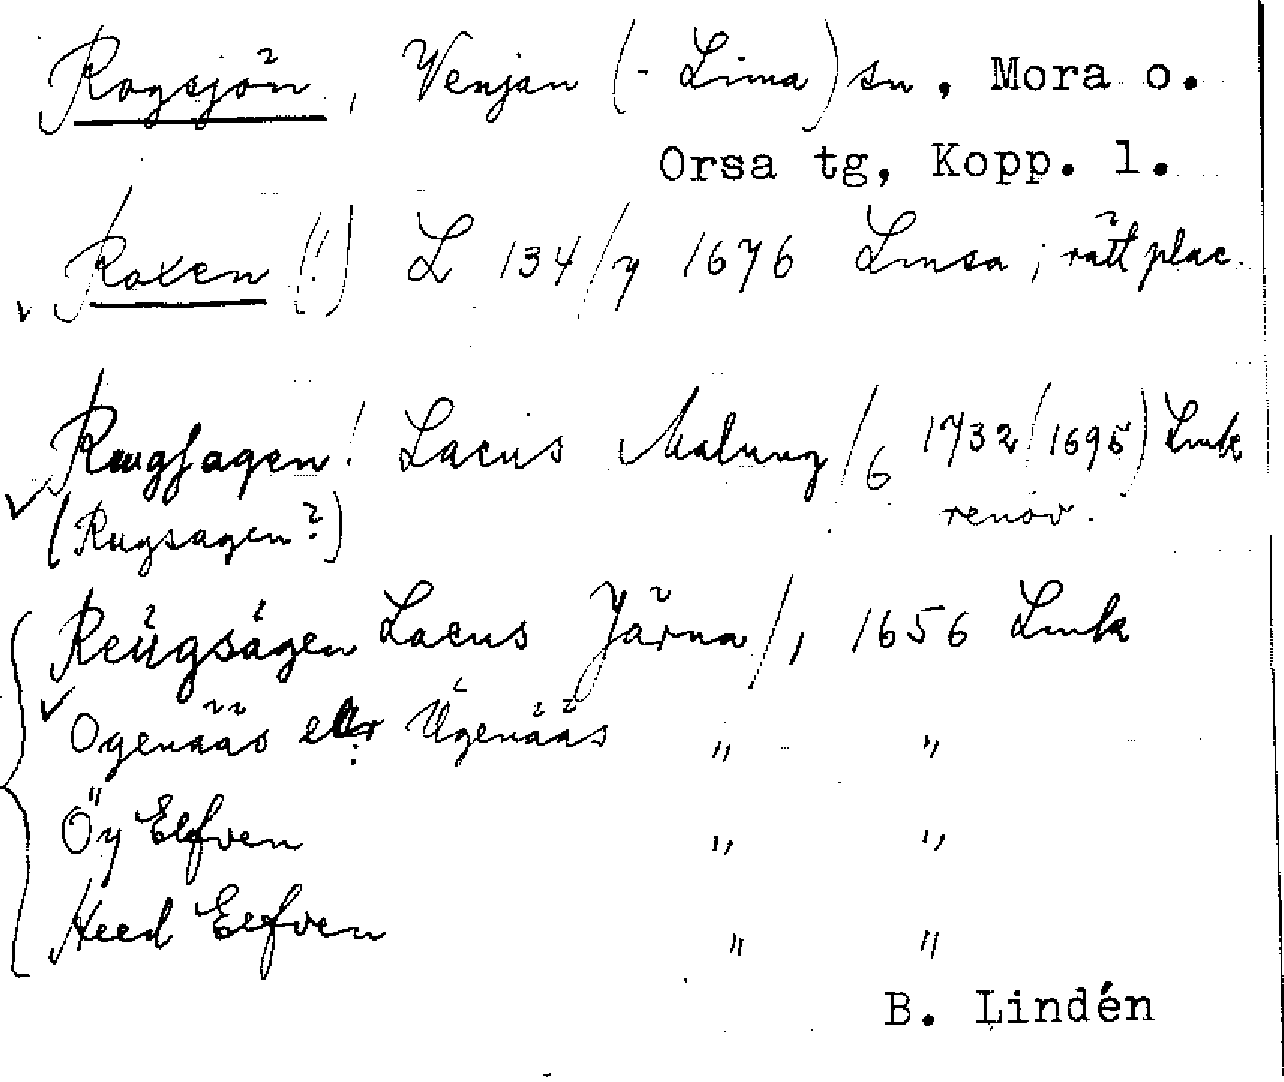 Rogsjön, Venjan (- Lima) sn, Mora o.
Orsa tg, Kopp. l.
Roxen (!) L 134/7 1676 Lmsa; rätt plac.
Rougsagen! Lacus Malung/6 1732(1695) Lmk
(Rugsagen?) renov.
Reügságen Lacus Järna/1 1656 Lmk
Ogenääs eller Ügenääs " "
Öy Elfven " "
Heed Elfven " "
B. Lindén